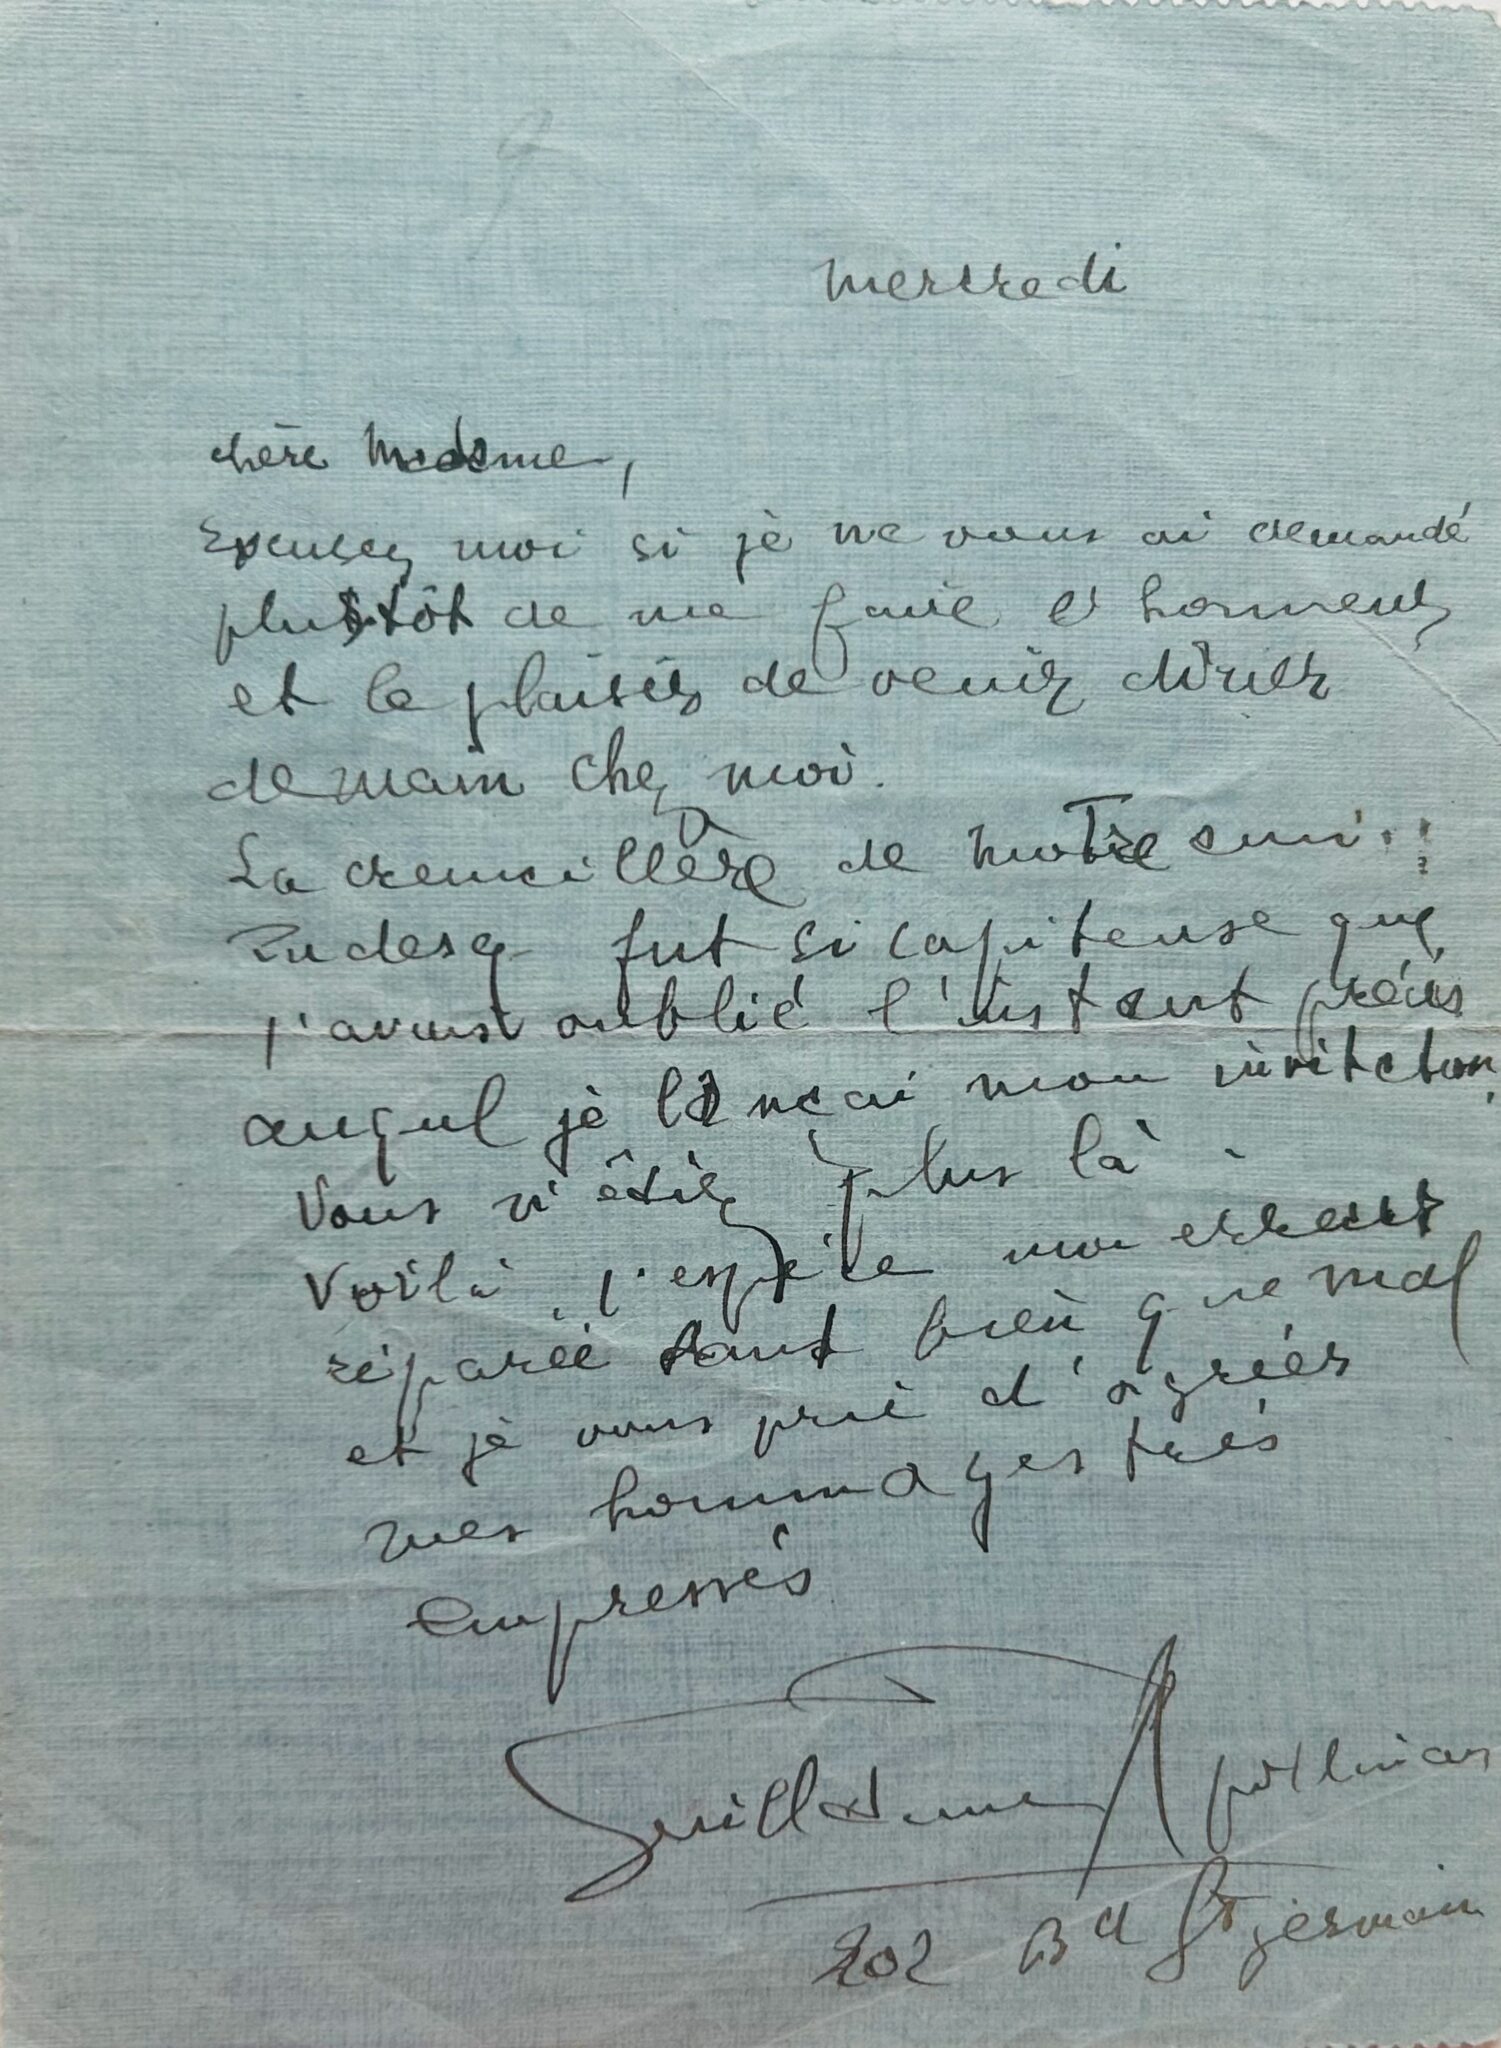 mercredi
chère Madame,
Excusez moi si je ne vous ai demandé
plustôt de me faire l'honneur
et le plaisir de venir dîner
demain chez moi.
La cremeillère de notre ami
fut si capiteuse que
j'avais oublié l'instant précis
auquel je lançai mon invitation
Vous n'étiez plus là.
Voilà, j'espère mon erreur
réparée tant bien que mal
et je vous prie d'agréer
mes hommages très
empressés
Guillaume Apollinaire
202 Bd St germain